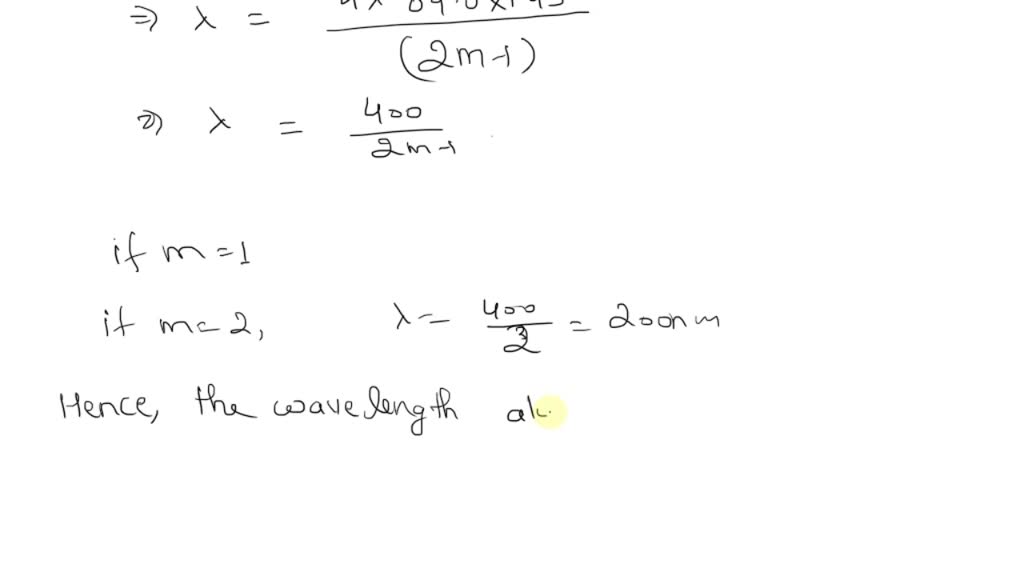 ⇒ λ =
(2m-1)
⇒ λ = 400 / 2m-1
if m=1
if m=2, λ = 400 / 2 = 200nm
Hence, the wavelength